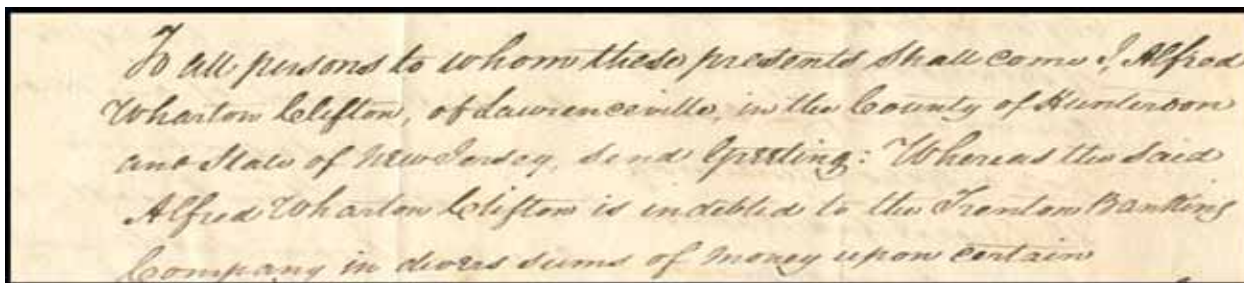 To all persons to whom these presents shall come I, Alfred
Wharton Clifton, of Lawrenceville, in the County of Hunterdon
and State of New Jersey, send Greeting: Whereas the said
Alfred Wharton Clifton is indebted to the Trenton Banking
Company in divers sums of money upon certain